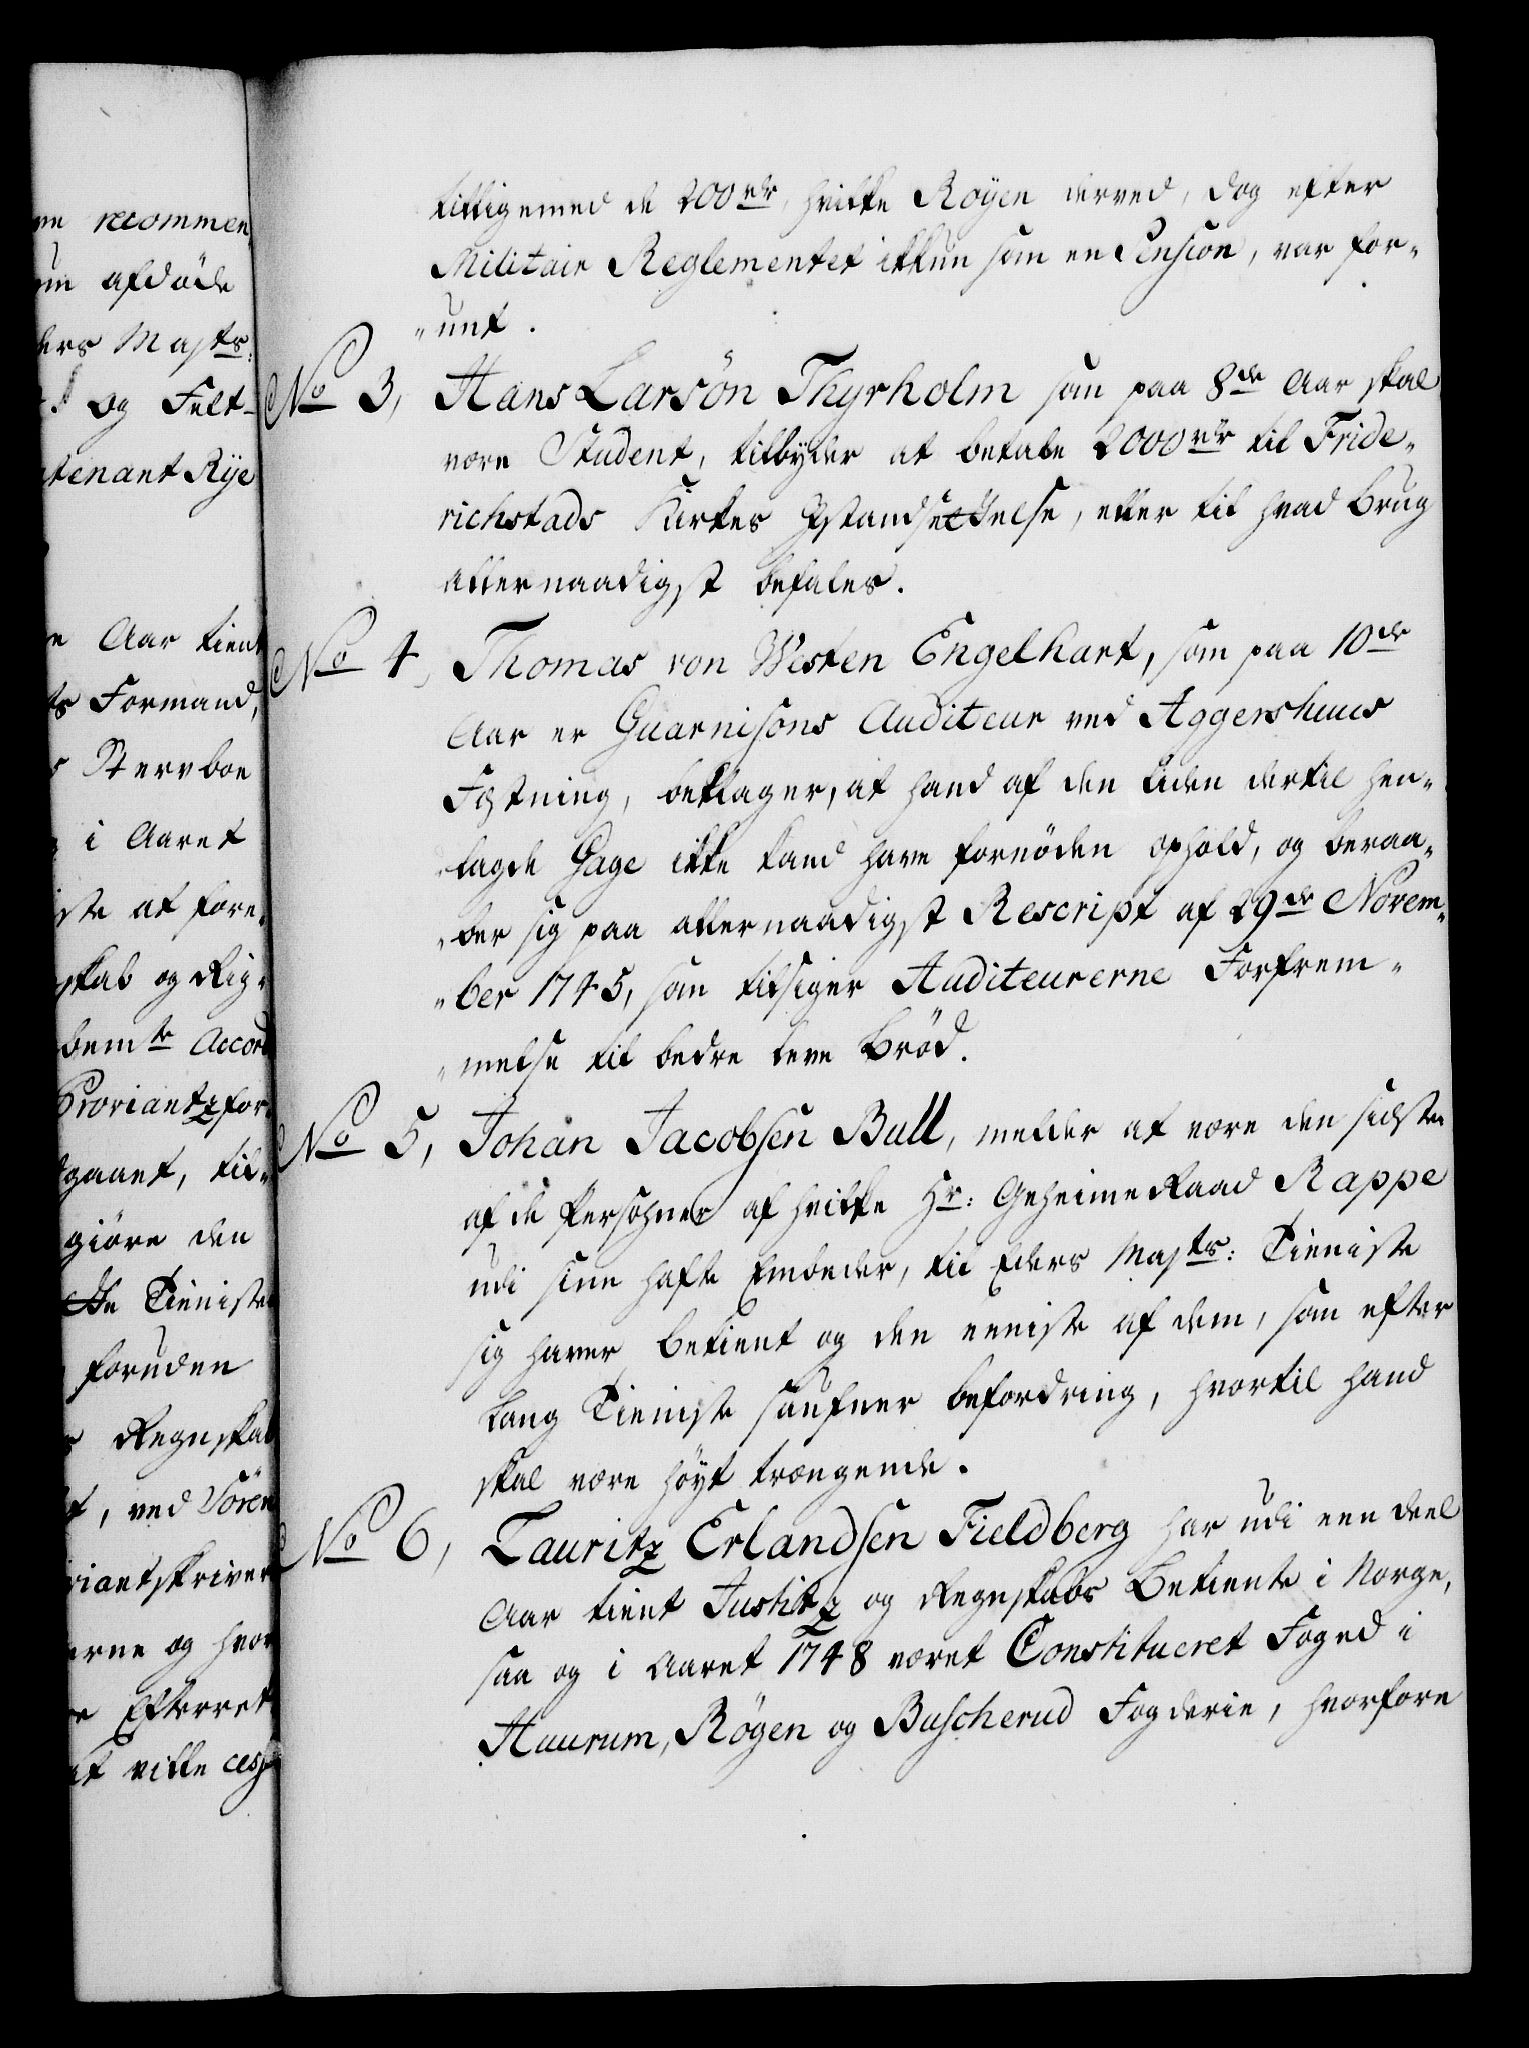 me recommen
um afdøde
ders Majts:
og Felt-
tenant Rÿe
Aar tient
ts Formand,
Stervboe
i Aaret
ste at fore-
skab og Rig-
bemte Accord
Proviantzfor-
gaaet, til-
giöre den
Tieniste
foruden
Regnskab
, ved Sören
riantskriver
erne og hvor
Efterret
at ville
tilligemed de 200rdr, hvilke Röÿen derved, dog efter
Militair Reglementet ikkun som en Pension, var for-
-unt.
No 3, Hans Larsön Thyrholm som paa 8de Aar skal
være Student, tilbyder at betale 2000rdr til Fride-
richstads Kirkes Istandsettelse, eller til hvad brug
allernaadigst befales.
No 4, Thomas von Westen Engelhart, som paa 10de
Aar er Guarnisons Auditeur ved Aggershuus
Fæstning, beklager, at hand af den liden dertil hen-
-lagde Gage ikke kand have fornöden ophold, og beraa-
-ber sig paa allernaadigst Rescript af 29de Novem-
-ber 1745, som tilsiger Auditeurerne Forfrem-
-melse til bedre leve Bröd.
No 5, Johan Jacobsen Bull, melder at være den sidste
af de Persohner af hvilke Hr: Geheime Raad Rappe
udi sine hafte Embeder, til Eders Majts: Tieniste
sig haver betient og den eeniste af dem, som efter
lang Tieniste saufner befordring, hvortil hand
skal være höyt trængende.
No 6, Lauritz Erlandsen Fieldberg har udi een deel
Aar tient Justitz og Regnskabs Betiente i Norge,
saa og i Aaret 1748 været Constitueret Foged i
Huurum, Rögen og Buscherud Fogderie, hvorfore